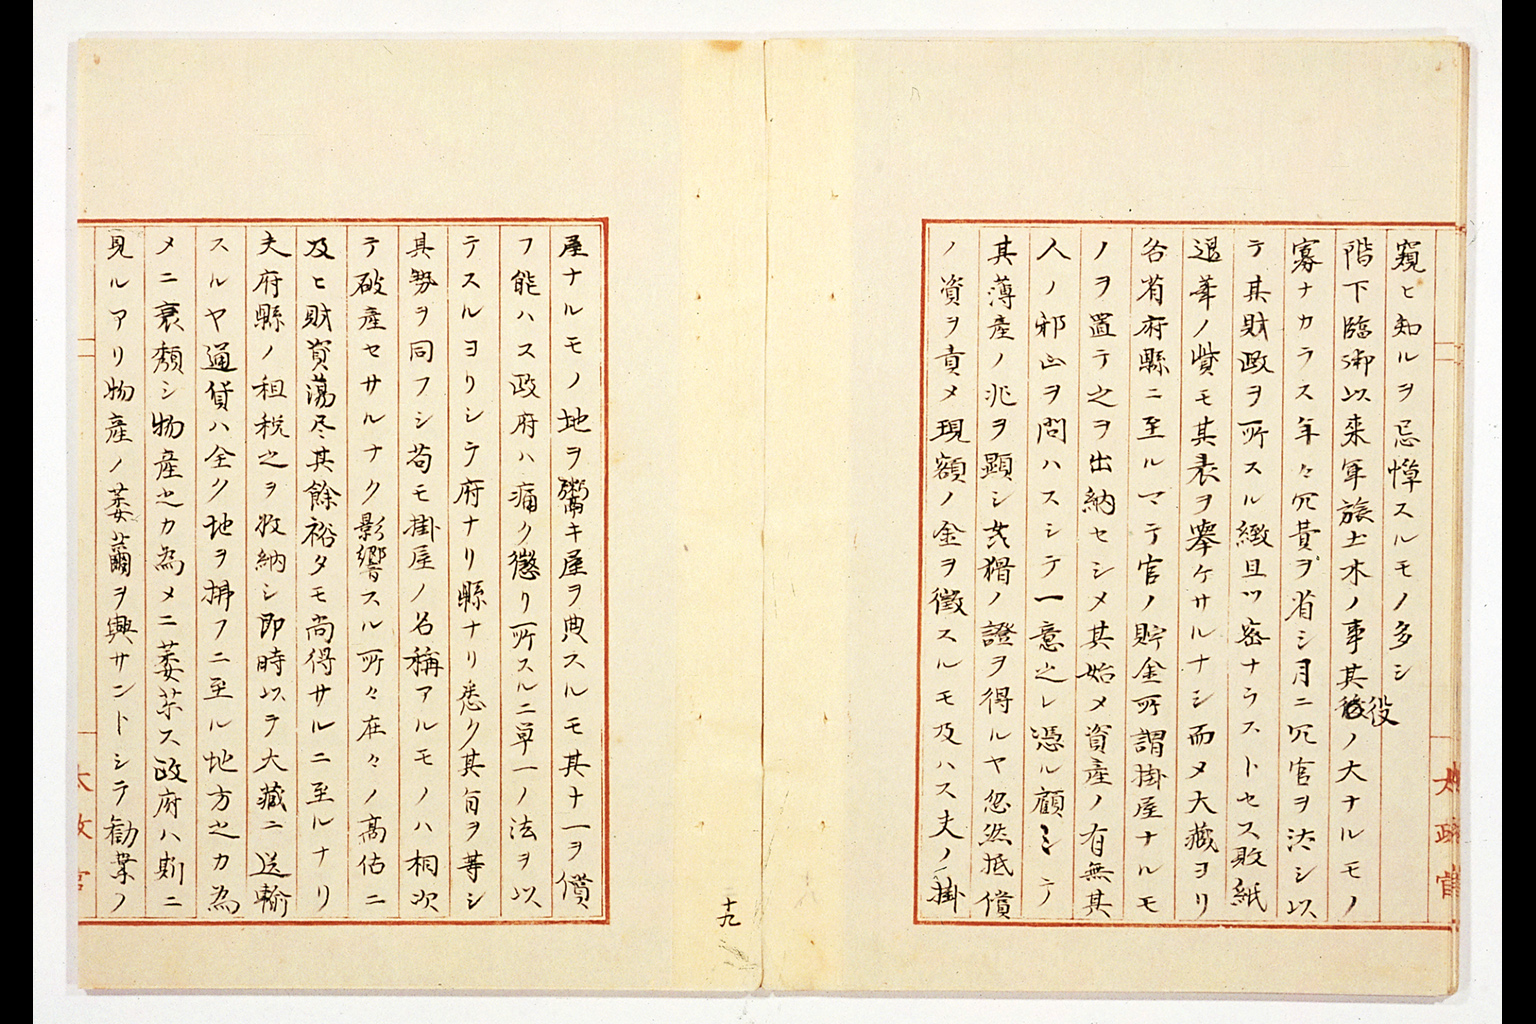 窺ヒ知ルヲ忌憚スルモノ多シ
階下臨御以来軍旅土木ノ事其役ノ大ナルモノ
寡ナカラス年々冗費ヲ省シ月ニ冗官ヲ汰シ以
テ其財政ヲ所スル緻且ツ密ナラストセス敗紙
退筆ノ貲モ其表ヲ挙ケサルナシ而メ大蔵ヨリ
各省府縣ニ至ルマテ官ノ貯金所謂掛屋ナルモ
ノヲ置テ之ヲ出納セシメ其始メ資産ノ有無其
人ノ邪正ヲ問ハスシテ一意之レ憑ル顧ミテ
其薄産ノ兆ヲ顕シ姦猾ノ證ヲ得ルヤ忽然抵償
ノ資ヲ責メ現額ノ金ヲ徴スルモ及ハス夫ノ掛
屋ナルモノ地ヲ鬻キ屋ヲ典スルモ其十一ヲ償
フ能ハス政府ハ痛ク懲リ所スルニ単一ノ法ヲ以
テスルヨリシテ府ナリ縣ナリ悉ク其旨ヲ等シ
其勢ヲ同フシ苟モ掛屋ノ名稱アルモノハ相次
テ破産セサルナク影響スル所々在々ノ高估ニ
及ヒ財資蕩尽其餘裕タモ尚得サルニ至ルナリ
夫府縣ノ租税之ヲ收納シ即時以テ大藏ニ送輸
スルヤ通貨ハ全ク地ヲ拂フニ至ル地方之カ為
メニ衰頽シ物産之カ為メニ萎苶ス政府ハ則ニ
見ルアリ物産ノ萎薾ヲ興サントシテ勧業ノ
十九
太政官
太政官